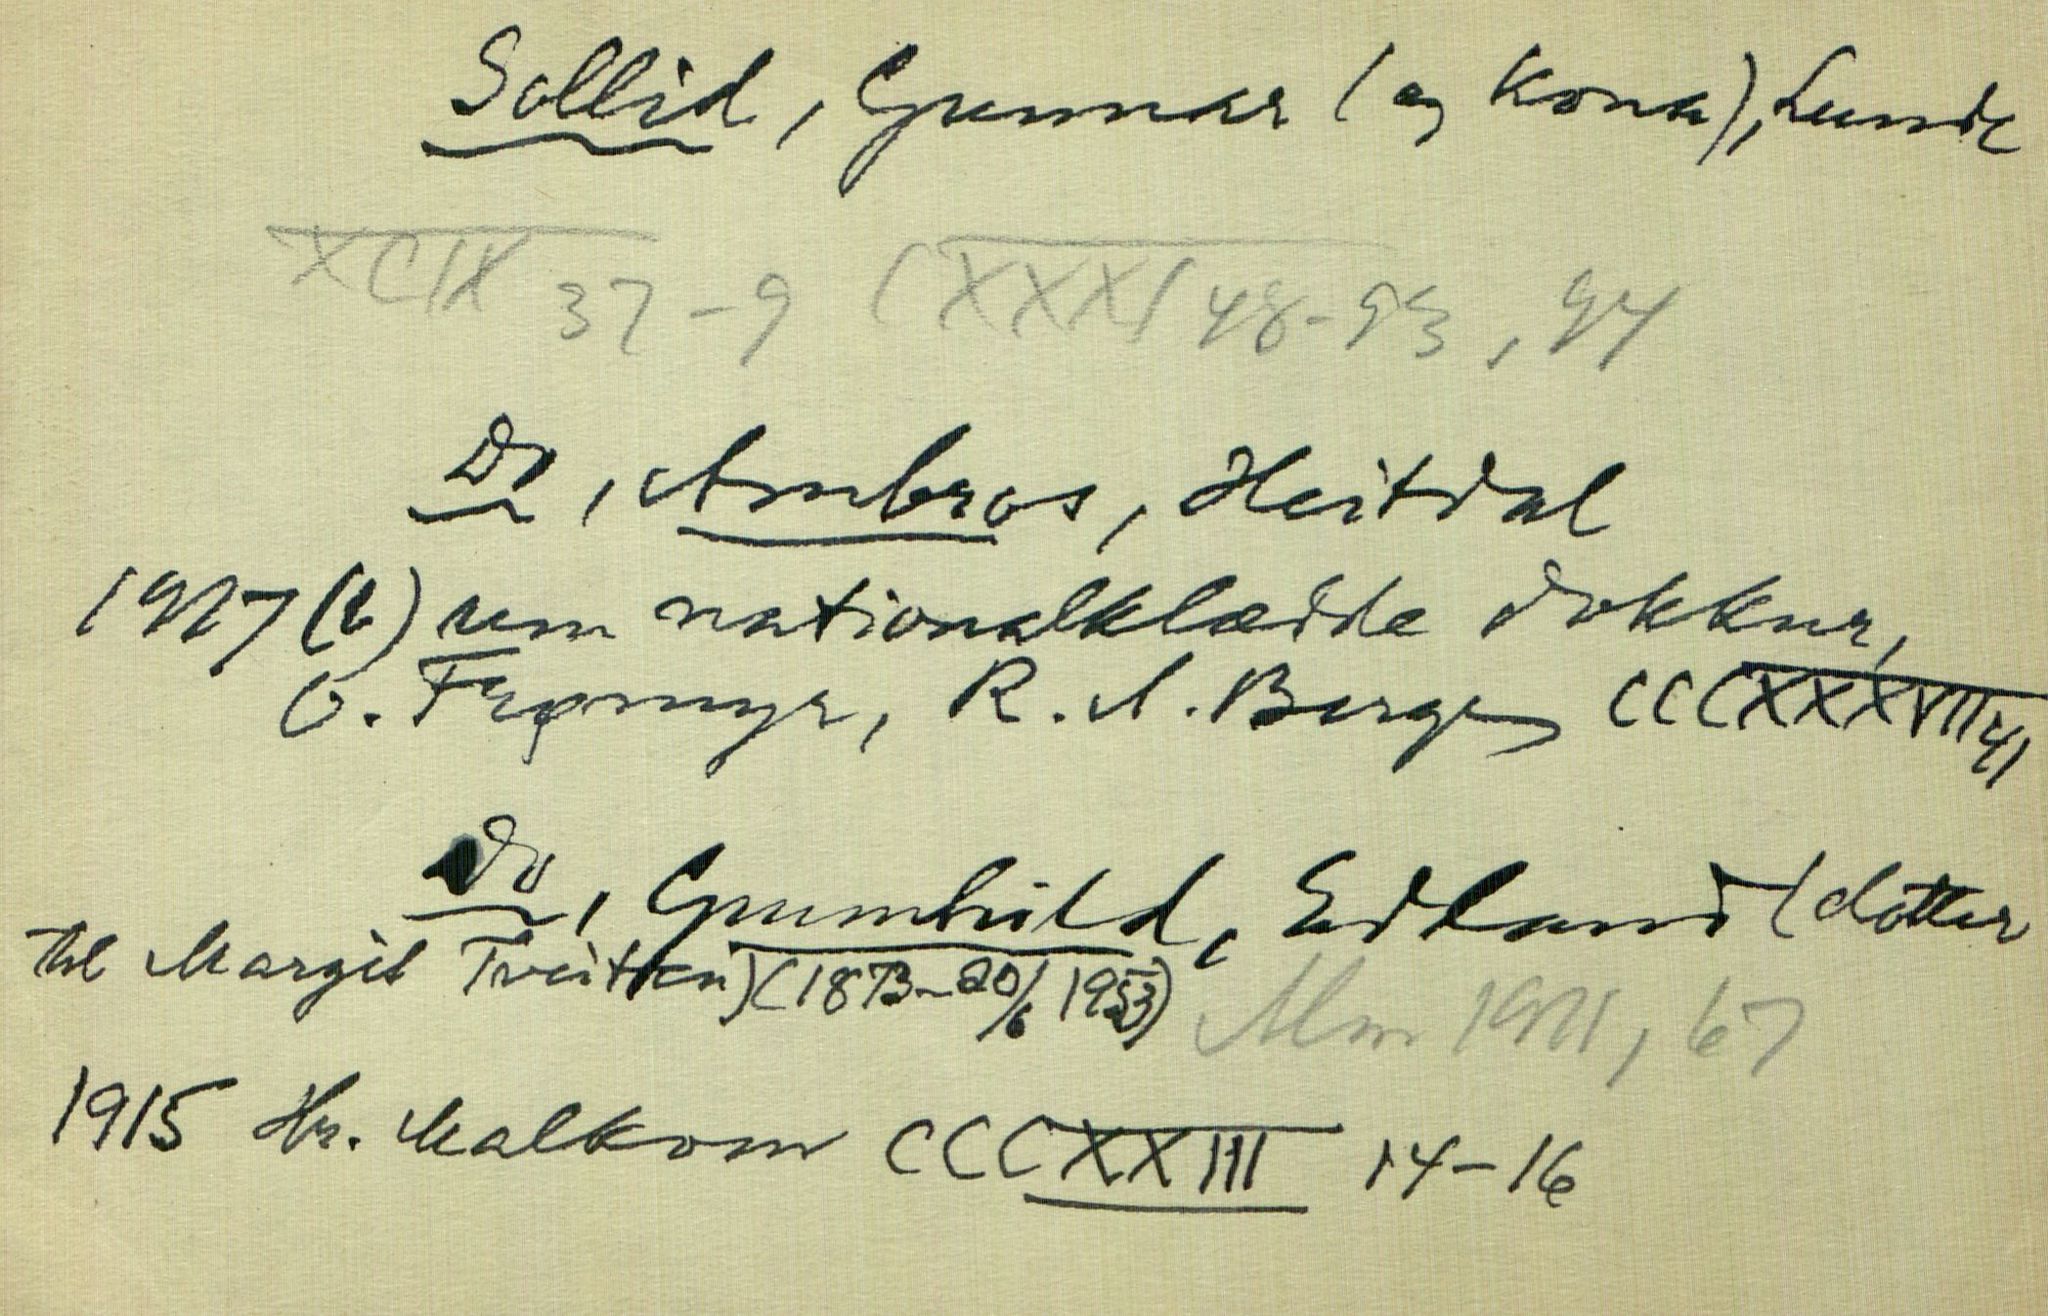 Sollid, Gunnar (og kona), Lunde
XCIX 37-9 CXXXI 48-93, 94
Do, Ambros, Heitdal
1927 (b) um nationalklædde dokkur,
O. Fregmyr, R. N. Berge, CCCXXXVII 41
Do, Gunnhild, Eidland (dotter
til Margit Tveiten) (1873-20/6 1953)
1921, 67
1915 Hr. Malkom CCCXXIII 14-16